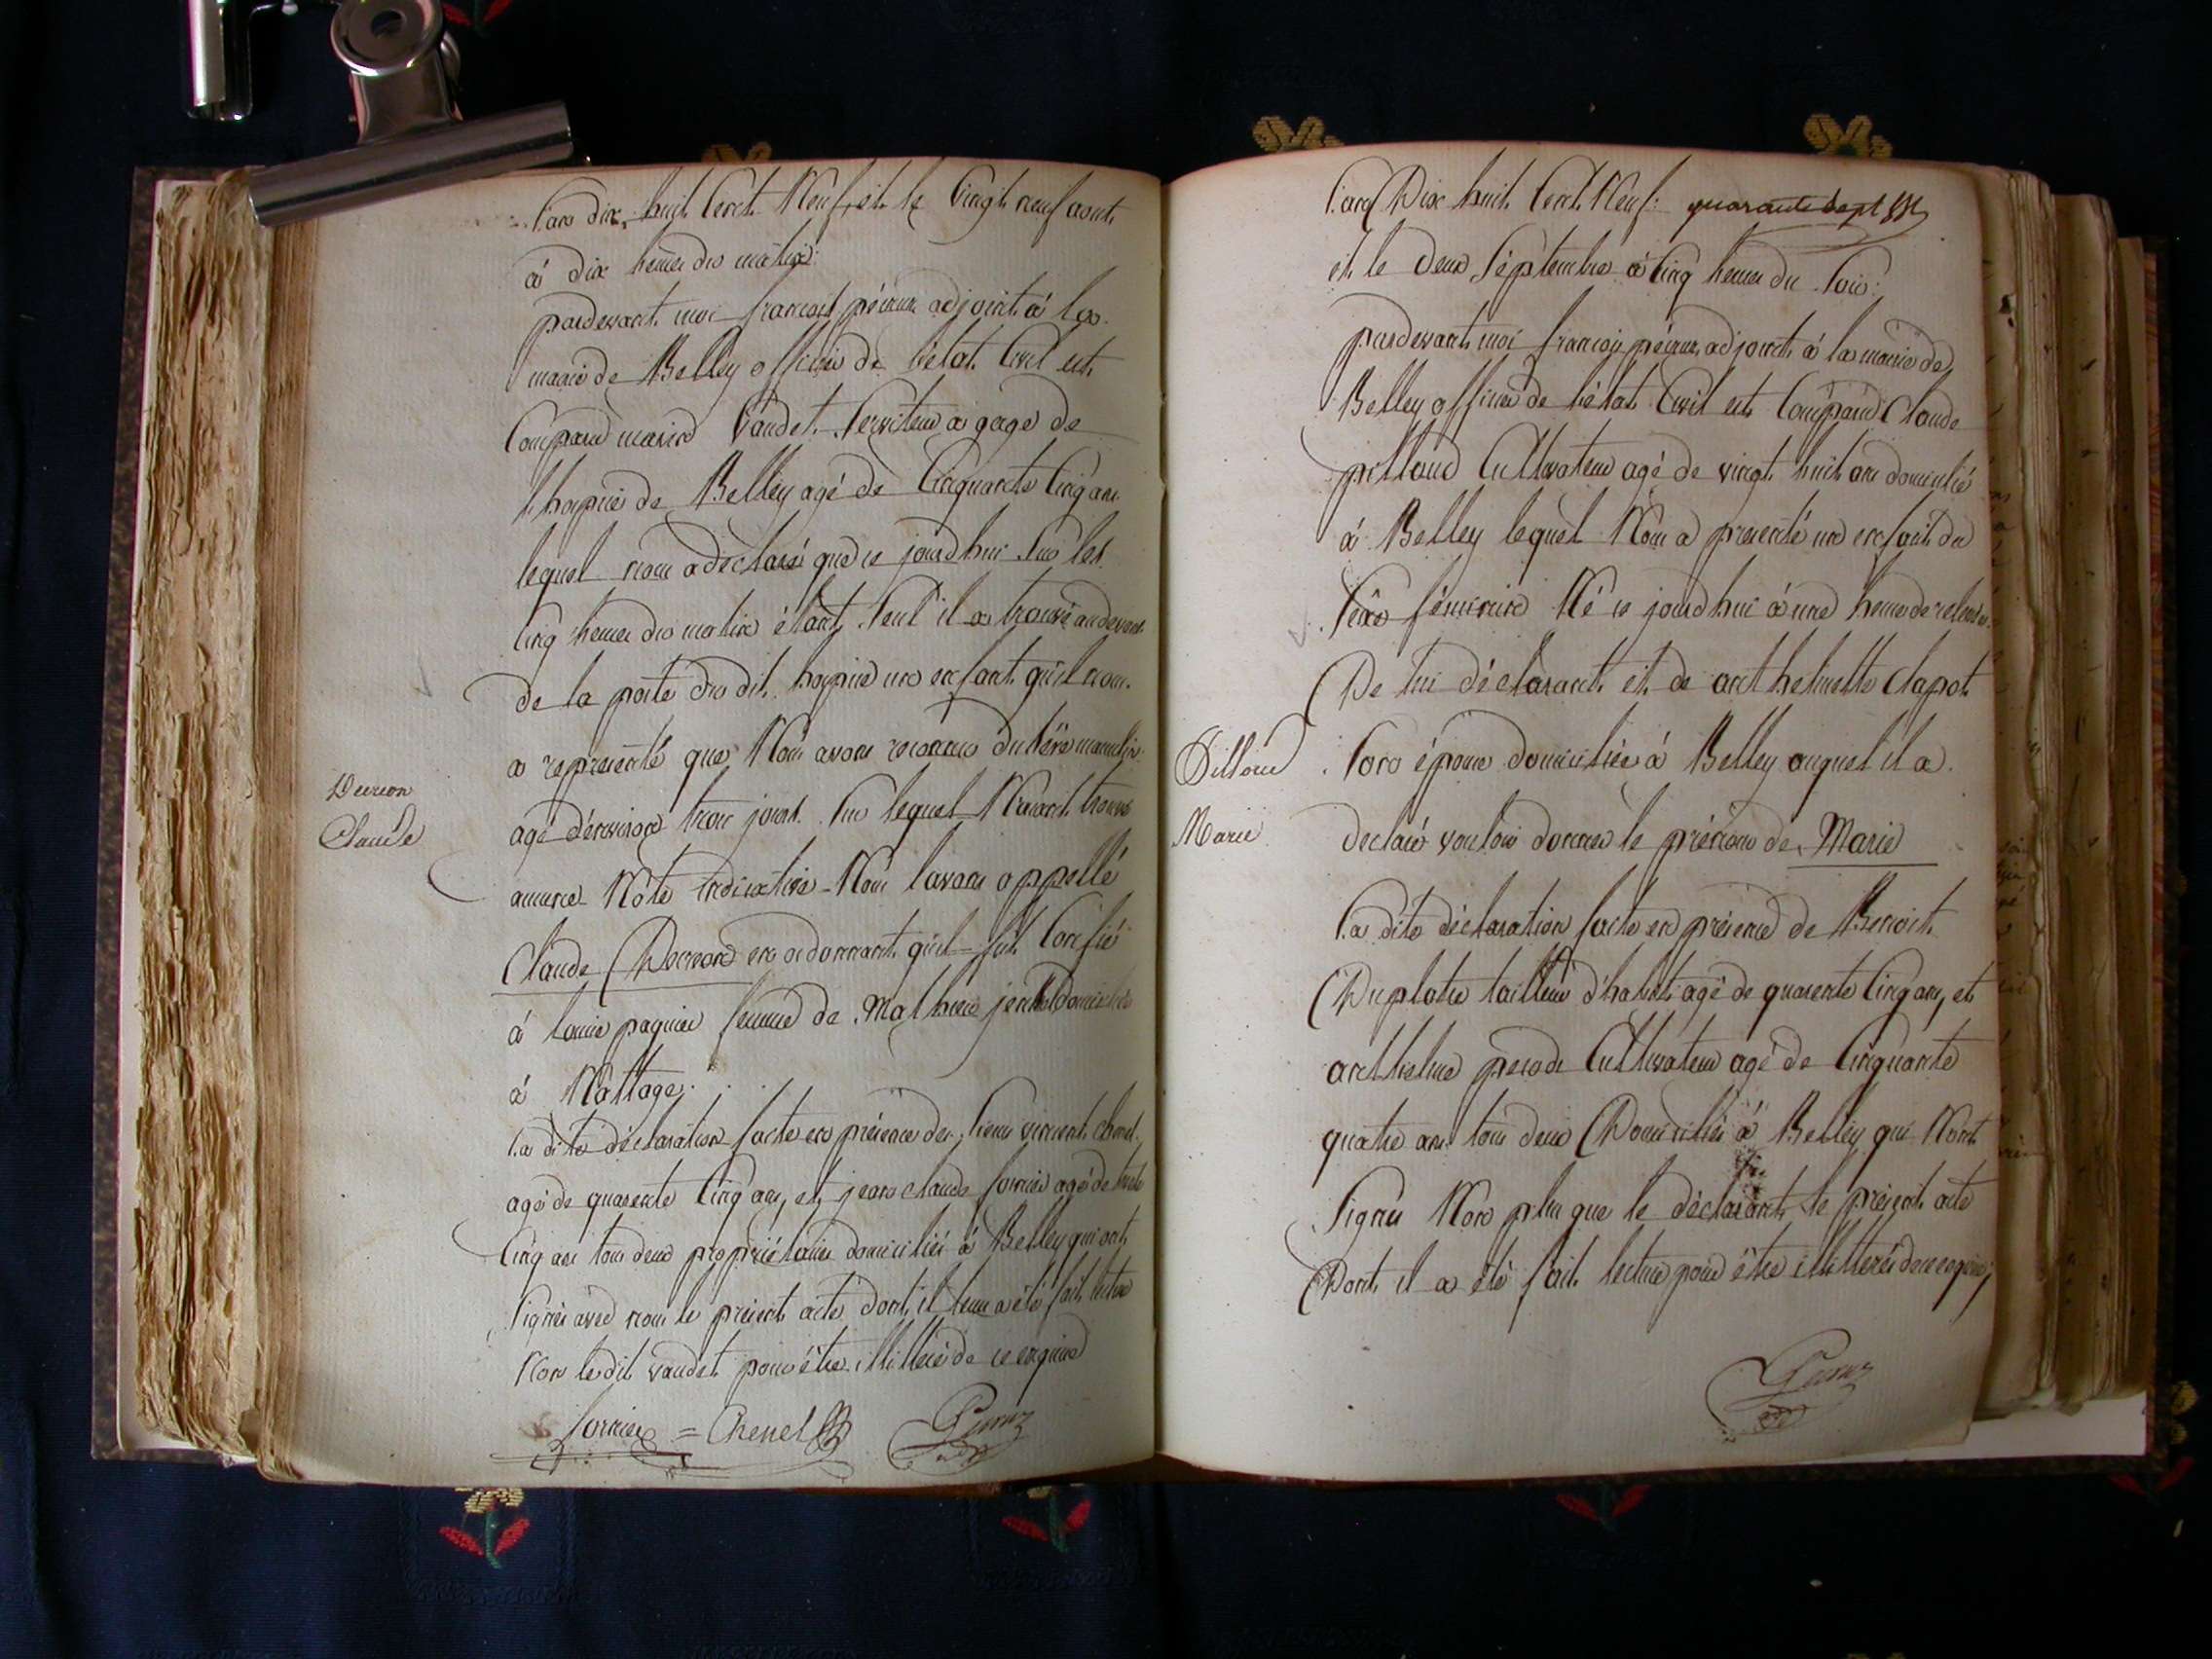 L'an dix huit Cent Neuf et le vingt neuf aout
à dix heures du matin:
pardevant moi francois péroux adjoint à la
mairie de Belley officier de l'état Civil est
Comparu Vaudet Serviteur a gage de
l'hospice de Belley agé de Cinquante Cinq ans
lequel nous a déclaré que ce jourd'hui Sur les
Cinq heures du matin étant Seul il a trouvé au devant
de la porte du dit hospice un enfant qu'il nous
a représenté que Nous avons reconnu du Séxe masculin
agé d'environ trois jours Sur lequel N'ayant trouvé
aucune Note indicative Nous l'avons appellé
Decrion
Claude
Claude en ordonnant qu'il fut Confié
à Louise paquier femme de Mathieu domiciliée
à Nattage:
La dite déclaration faite en présence des Sieurs vincent
agé de quarente Cinq ans, et jean claude fornier agé de trente
Cinq ans tous deux propriétaires domiciliés à Belley qui ont
Signés avec nous le présent acte dont il leur a été fait lecture
Non le dit vaudet pour être illitteré de ce enquis
fornier = Chenel
L'an Dix huit Cent Neuf: quarante sept
et le deux Séptembre à Cinq heures du Soir:
pardevant moi francois péroux adjoint à la mairie de
Belley officier de l'état Civil est Comparu Claude
pilloud Cultivateur agé de vingt huit ans domicilié
à Belley lequel Nous a présenté un enfant du
Séxe féminin Né ce jourd'hui à une heure de relevée
De lui déclarant et de anthelmette Clapot
Pilloud
Marie
Son épouse domiciliée à Belley auquel il a
declaré vouloir donner le prénom de Marie
La dite déclaration faite en présence de Benoit
Duplatre tailleur d'habits agé de quarente Cinq ans, et
anthelme Cultivateur agé de Cinquante
quatre ans tous deux Domiciliés à Belley qui N'ont
Signés Non plus que le déclarant le présent acte
Dont il a été fait lecture pour être illitterés de ce enquis;